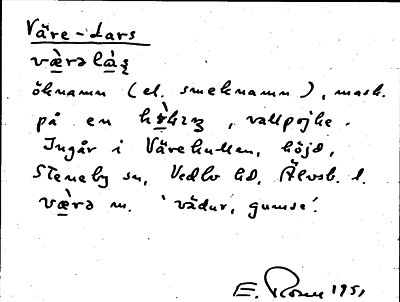 Väre-Lars
væ̀rə làʂ
öknamn (el. smeknamn), mask.
på en , vallpojke.
Ingår i Värekullen, höjd,
Steneby sn, Vedbo hd, Älvsb. l.
væ̀rə m. 'vädur, gumse'.
E. Rosell 1951